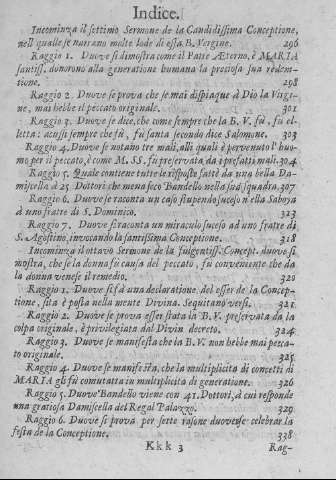 Indice.
Incominza il settimo Sermone de la Candidissima Conceptione,
nell quale se narrano molte lode di essa B. Vergine. 296
Raggio 1. Duove si dimostra come il Patre Æterno, è MARIA
santiss. donorono alla generatione humana la preciosa sua redem-
tione. 298
Raggio 2. Duove se prova che se mai dispiaque à Dio la Virgi-
ne, mai hebbe il peccato originale. 301
Raggio 3. Duove se dice, che come sempre che la B. V. fù, fu el-
letta: acussi sempre che fù, fu santa secondo dice Salomone. 303
Raggio 4. Duove se notano tre mali, alli quali è pervenuto l'huo-
mo per il peccato, è come M. SS. fu preservata da i prefati mali. 304
Raggio 5. Quale contiene tutte le risposte fatte da una bella Da-
miscella à 25 Dottori che mena seco Bandello nella sua squadra. 307
Raggio 6. Duove se raconta un caso stupendo sucesso n'ella Saboya
ad uno fratre di S. Dominico. 313
Raggio 7. Duove si raconta un miraculo sucesso ad uno fratre di
S. Agostino, invocando la santissima Conceptione. 318
Incominza il ottavo Sermone de la fulgentiss. Concept. duove si
mostra, che se la donna fu causa del peccato, fu conveniente che da
la donna venese il remedio. 320
Raggio 1. Duove si fà una declaratione, del esser de la Concep-
tione, sita è posta nella mente Divina. Sequitano versi. 321
Raggio 2. Duove se prova esser stata la B. V. preservata da la
colpa originale, è privilegiata dal Divin decreto. 324
Raggio 3. Duove se manifesta che la B. V. non hebbe mai pecca-
to originale. 325
Raggio 4. Duove se manifesta, che la multiplicita di concetti di
MARIA gli fù comutatta in multiplicita di generatione. 326
Raggio 5. Duove Bandello viene con 41. Dottori, à cui responde
una gratiosa Damiscella del Regal Palazzo. 329
Raggio 6. Duove si prova per sette rasone duovese celebrar la
festa de la Conceptione. 338
Kkk 3 Rag-